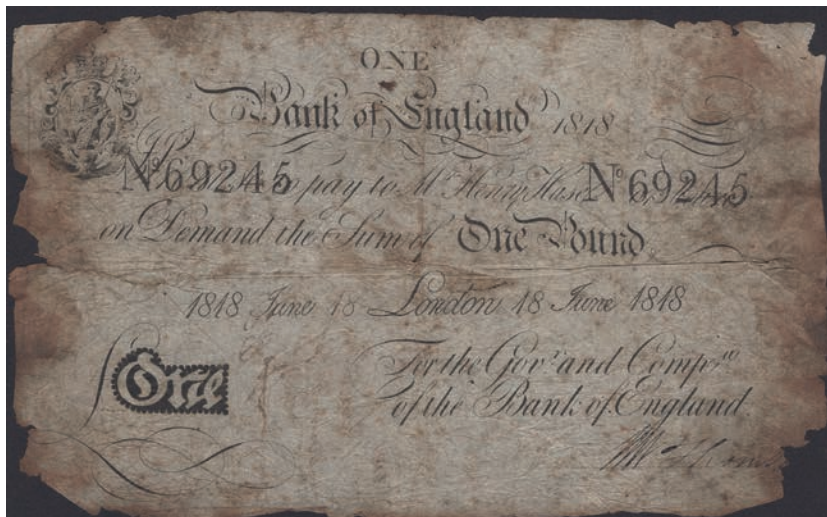 ONE
Bank of England 1818
Nº 69245 to pay to Mr Henry Hase Nº 69245
on Demand the Sum of One Pound
1818 June 18 London 18 June 1818
£ One For the Govr and Compa
of the Bank of England.